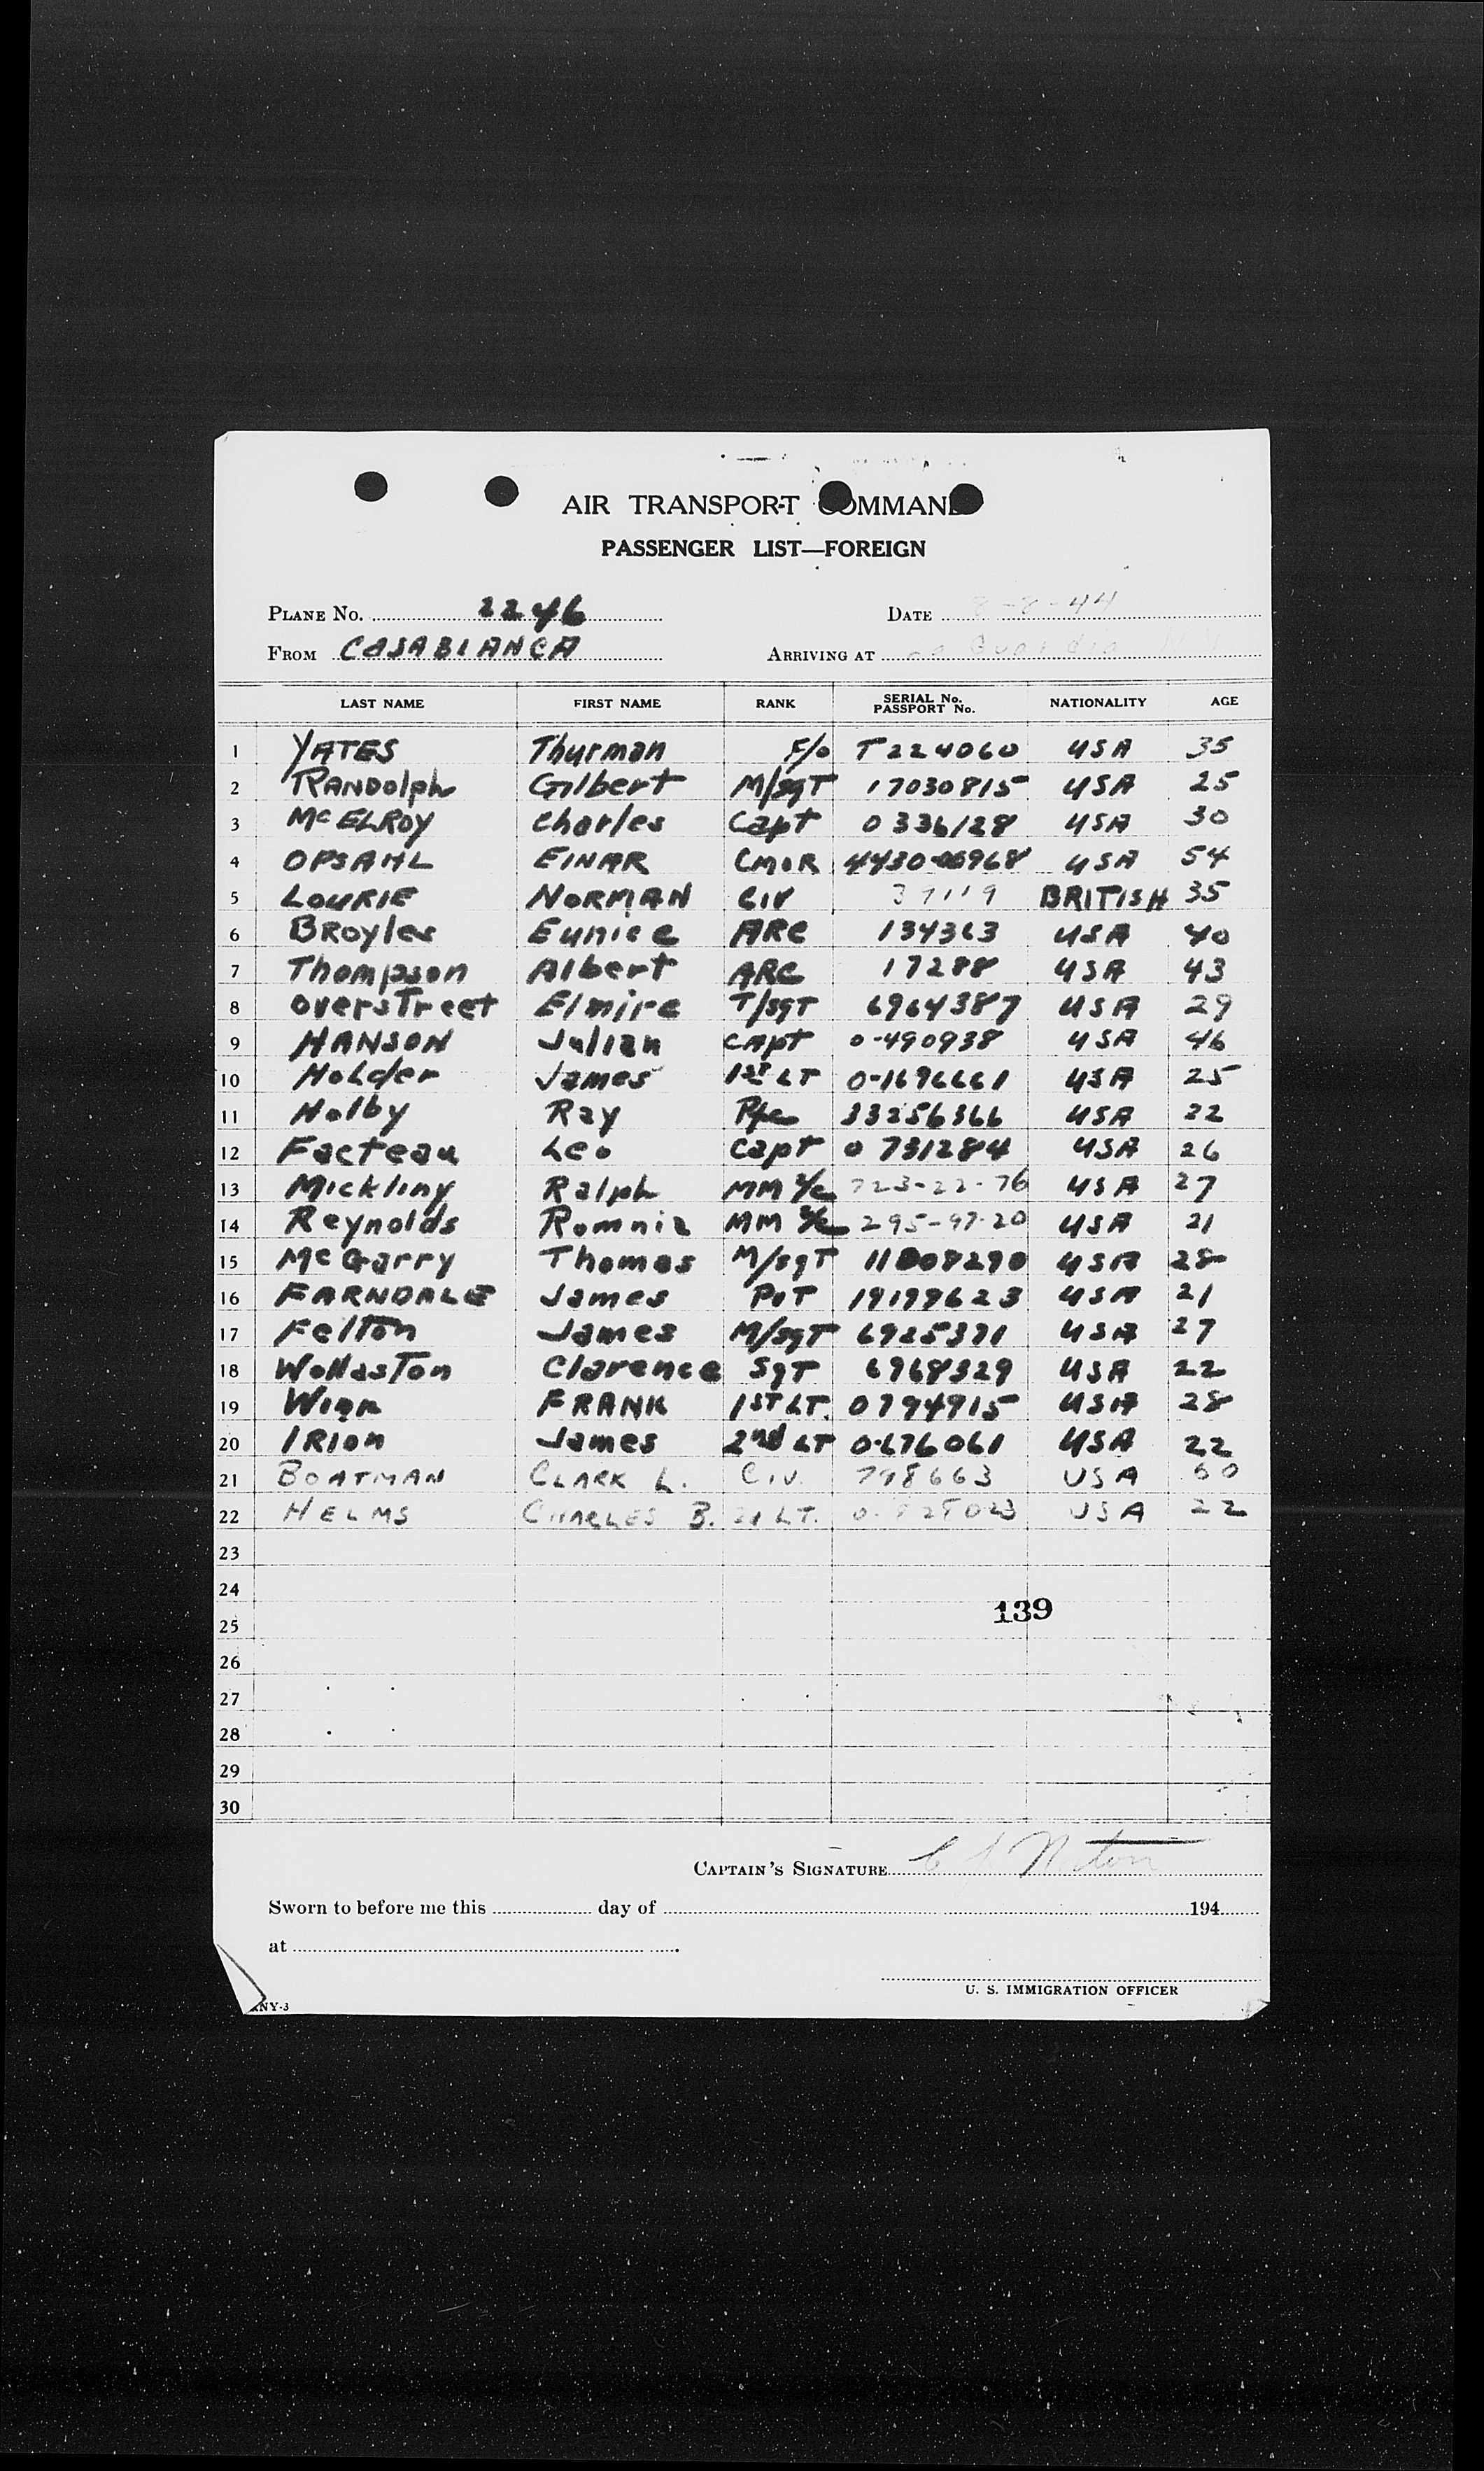 AIR TRANSPORT COMMAND
PASSENGER LIST—FOREIGN
PLANE No. 2246 DATE -44
FROM CASABLANCA ARRIVING AT Guardia
LAST NAME FIRST NAME RANK SERIAL No. PASSPORT No. NATIONALITY AGE
1 YATES Thurman F/o T224060 USA 35
2 RANDOlph Gilbert M/sgT 17030815 USA 25
3 McELROY Charles Capt 0336128 USA 30
4 OPSAHL EINAR CMDR USA 54
5 LOURIE NORMAN CIV 37119 BRITISH 35
6 BRoyles Eunice ARC 134363 USA 40
7 Thompson Albert ARC 17288 USA 43
8 oversTreet Elmire T/sgT 6964387 USA 29
9 HANSON Julian CApt 0-490938 USA 46
10 HoLder James 1st LT 0-1696661 USA 25
11 Holby Ray Pfc 33256366 USA 22
12 Facteau Leo Capt 0 731284 USA 26
13 Mickling Ralph MM 723-22-76 USA 27
14 Reynolds Romnie MM 295-97-20 USA 21
15 McGarry Thomas M/sgT 11008290 USA 28
16 FARNDALE James PVT 19199623 USA 21
17 Felton James M/sgT 6925371 USA 27
18 WollasTon Clarence SgT 6968329 USA 22
19 Winn FRANK 1ST LT. 0794915 USA 28
20 IRion James 2nd LT 0-676061 USA 22
21 BOATMAN CLARK L. CIV. 798663 USA 60
22 HELMS CHARLES B. LT. USA 22
23
24
139
25
26
27
28
29
30
CAPTAIN'S SIGNATURE
Sworn to before me this day of 194
at
U. S. IMMIGRATION OFFICER
NY-3